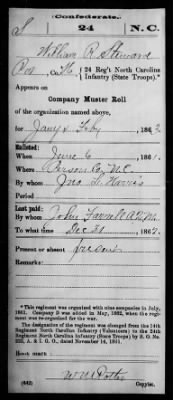 Confederate.
S 24 N.C.
William R Steward
Pvt, Co. , 24 Reg't North Carolina
Infantry (State Troops).*
Appears on
Company Muster Roll
of the organization named above,
for Jany & Feby, 1863.
Enlisted:
When June 6, 1861.
Where Person Co, N.C.
By whom Jno. L. Harris
Period
Last paid:
By whom John Farrell A.Q.M.
To what time Dec 31, 1862.
Present or absent Present
Remarks:
*This regiment was organized with nine companies in July,
1861. Company D was added in May, 1862, when the regiment
was re-organized for the war.
The designation of the regiment was changed from the 14th
Regiment North Carolina Infantry (Volunteers) to the 24th
Regiment North Carolina Infantry (State Troops) by S. O. No.
222, A. & I. G. O., dated November 14, 1861.
Book mark:
(642) Copyist.